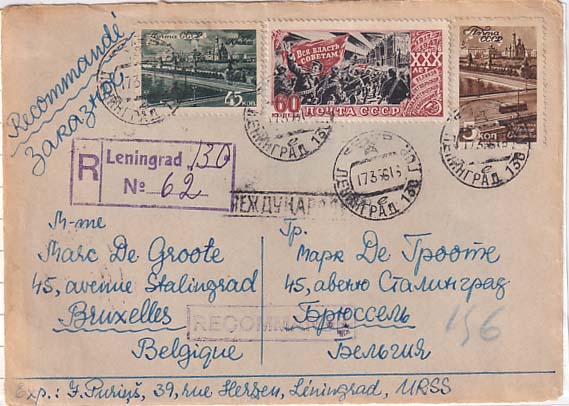 Recommandé
Заказное
Почта СССР
45 коп
Вся власть
Советам!
1917
1947
XXX
лет
60
копеек
ПОЧТА СССР
Почта
СССР
5 коп
ЛЕНИНГРАД 130
17 3
ЛЕНИНГРАД 130
ЛЕНИНГРАД 130
ЛЕНИНГРАД 130
R Leningrad 130
№ 62
МЕЖДУНАРОД
M-me
Marc De Groote
45, avenue Stalingrad
Bruxelles
Belgique
Гр.
Марк Де Гроотe
45, авеню Сталинград
Брюссель
Бельгия
RECOMMA
156
Exp.: J. Puriņš, 39, rue Herzen, Léningrad, URSS